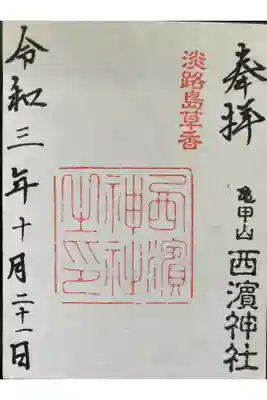 奉拝
淡路島草香
亀甲山
西濱神社
西濱
神社
之印
令和三年十月二十一日